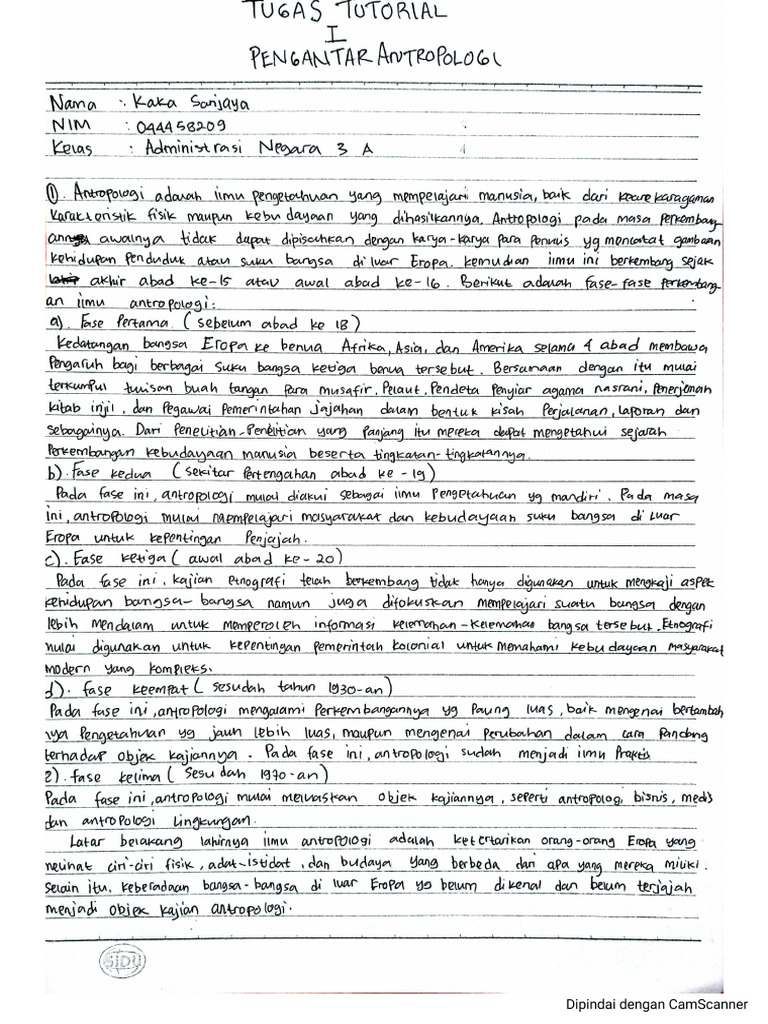 TUGAS TUTORIAL
I
PENGANTAR ANTROPOLOGI
Nama : Kaka Sanjaya
NIM : 044458209
Kelas : Administrasi Negara 3 A
①. Antropologi adalah ilmu pengetahuan yang mempelajari manusia, baik dari keanekaragaman
karakteristik fisik maupun kebudayaan yang dihasilkannya. Antropologi pada masa perkembang
annya awalnya tidak dapat dipisahkan dengan karya-karya para penulis yg mencatat gambaran
kehidupan penduduk atau suku bangsa di luar Eropa. kemudian ilmu ini berkembang sejak
akhir abad ke-15 atau awal abad ke-16. Berikut adalah fase-fase perkembang
an ilmu antropologi:
a). Fase Pertama ( sebelum abad ke 18)
Kedatangan bangsa Eropa ke benua Afrika, Asia, dan Amerika selama 4 abad membawa
Pengaruh bagi berbagai suku bangsa ketiga benua tersebut. Bersamaan dengan itu mulai
terkumpul tulisan buah tangan para musafir, Pelaut, Pendeta Penyiar agama nasrani, Penerjemah
kitab injil, dan Pegawai Pemerintahan jajahan dalam bentuk kisah Perjalanan, laporan dan
sebagainya. Dari Penelitian-Penelitian yang panjang itu mereka dapat mengetahui sejarah
Perkembangan kebudayaan manusia beserta tingkatan-tingkatannya.
b). Fase kedua ( sekitar Pertengahan abad ke -19)
Pada fase ini, antropologi mulai diakui sebagai ilmu Pengetahuan yg mandiri. Pada masa
ini, antropologi mulai mempelajari masyarakat dan kebudayaan suku bangsa di luar
Eropa untuk kepentingan Penjajah.
c). Fase ketiga ( awal abad ke-20)
Pada fase ini, kajian Etnografi telah berkembang tidak hanya digunakan untuk mengkaji aspek
kehidupan bangsa-bangsa namun juga difokuskan mempelajari suatu bangsa dengan
lebih mendalam untuk memperoleh informasi kelemahan-kelemahan bangsa tersebut. Etnografi
mulai digunakan untuk kepentingan pemerintah kolonial untuk memahami kebudayaan masyarakat
modern yang kompleks.
d). fase keempat ( sesudah tahun 1930-an)
Pada fase ini, antropologi mengalami Perkembangannya yg Paling luas, baik mengenai bertambah
nya Pengetahuan yg jauh lebih luas, maupun mengenai Perubahan dalam cara Pandang
terhadap objek kajiannya. Pada fase ini, antropologi sudah menjadi ilmu Praktis
e). fase kelima ( Sesudah 1970-an)
Pada fase ini, antropologi mulai meluaskan objek kajiannya, seperti antropologi bisnis, medis
dan antropologi Lingkungan.
Latar belakang lahirnya ilmu antropologi adalah ketertarikan orang-orang Eropa yang
melihat ciri-ciri fisik, adat-istidat, dan budaya yang berbeda dari apa yang mereka miliki.
Selain itu, keberadaan bangsa-bangsa di luar Eropa yg belum dikenal dan belum terjajah
menjadi objek kajian antropologi.
SIDU
Dipindai dengan CamScanner